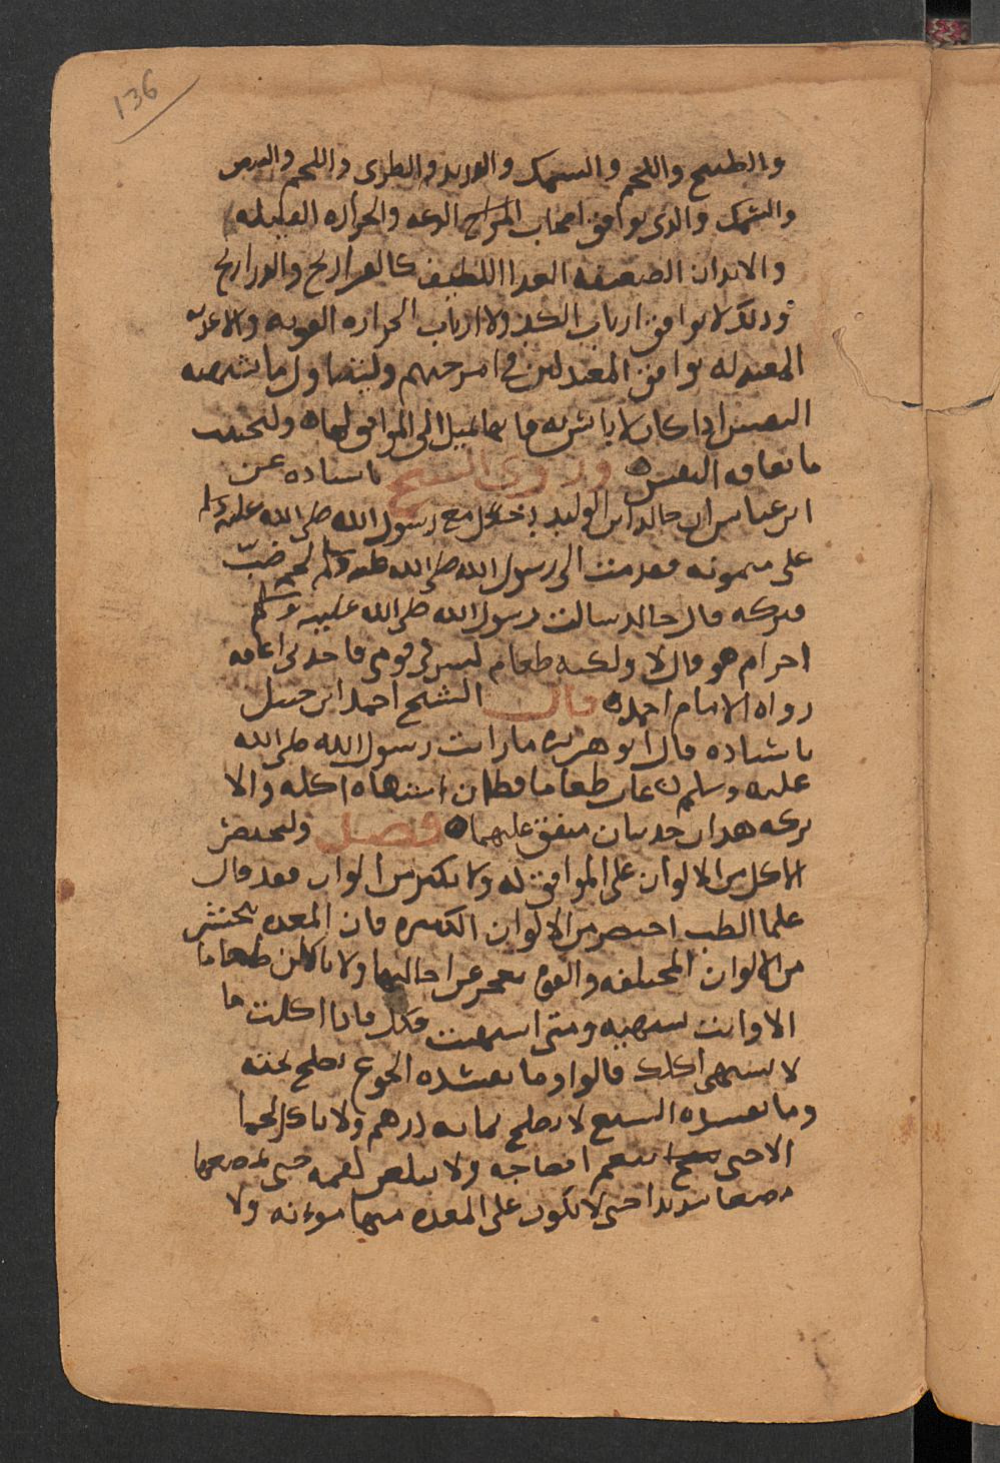 136
والطبيخ واللحم والسمك والثريد والطرى واللحم
والسمك والذى يوافق اصحاب المزاج الدعه والحراره القليله
والابدان الضعيفه الغدا اللطيف كالفراريج والدراريج
وذلك لا يوافق ارباب الكد ولا ارباب الحراره القويه والاغديه
المعتدله توافق المعتدلين في امزجتهم وليتناول ما تشتهيه
النفس اذا كان لا باس به فانها تميل الى الموافق لها ه وليجتنب
ما تعافه النفس ه وروى الشيخ باسناده عن
ابن عباس ان خالد ابن الوليد دخل مع رسول الله صلى الله عليه وسلم
على ميمونه فقدمت الى رسول الله صلى الله عليه وسلم لحم ضبّ
فتركه قال خالد سالت رسول الله صلى الله عليه وسلم
احرام هو قال لا ولكنه طعام ليس في قومى فاجدنى اعافه
رواه الامام احمد ه قال الشيخ احمد ابن حنبل
باسناده قال ابو هريره ما رايت رسول الله صلى الله
عليه وسلم عاب طعاما قط ان اشتهاه اكله والا
تركه هذان حديثان متفق عليهما ه فصل وليختصر
الاكل من الالوان على الموافق له ولا يكثر من الوان فقد قال
علما الطب احتصر من الالوان الكثيره فان المعده تحتشر
من الالوان المختلفه والقوه تعجز عن احالتها ولا تاكلن طعاما
الا وانت تشتهيه ومتى اشتهيت فكل فاذا اكلت ما
لا تشتهى اكلك قالوا وما يفسده الجوع يصلح بحته
وما يفسده الشبع لا يصلح بمايه درهم ولا تاكل لحما
الا حتى تنعم انضاجه ولا تبلعن لقمه حتى تمضعها
مضغا شديدا حتى لا يكون على المعده منها موءنه ولا